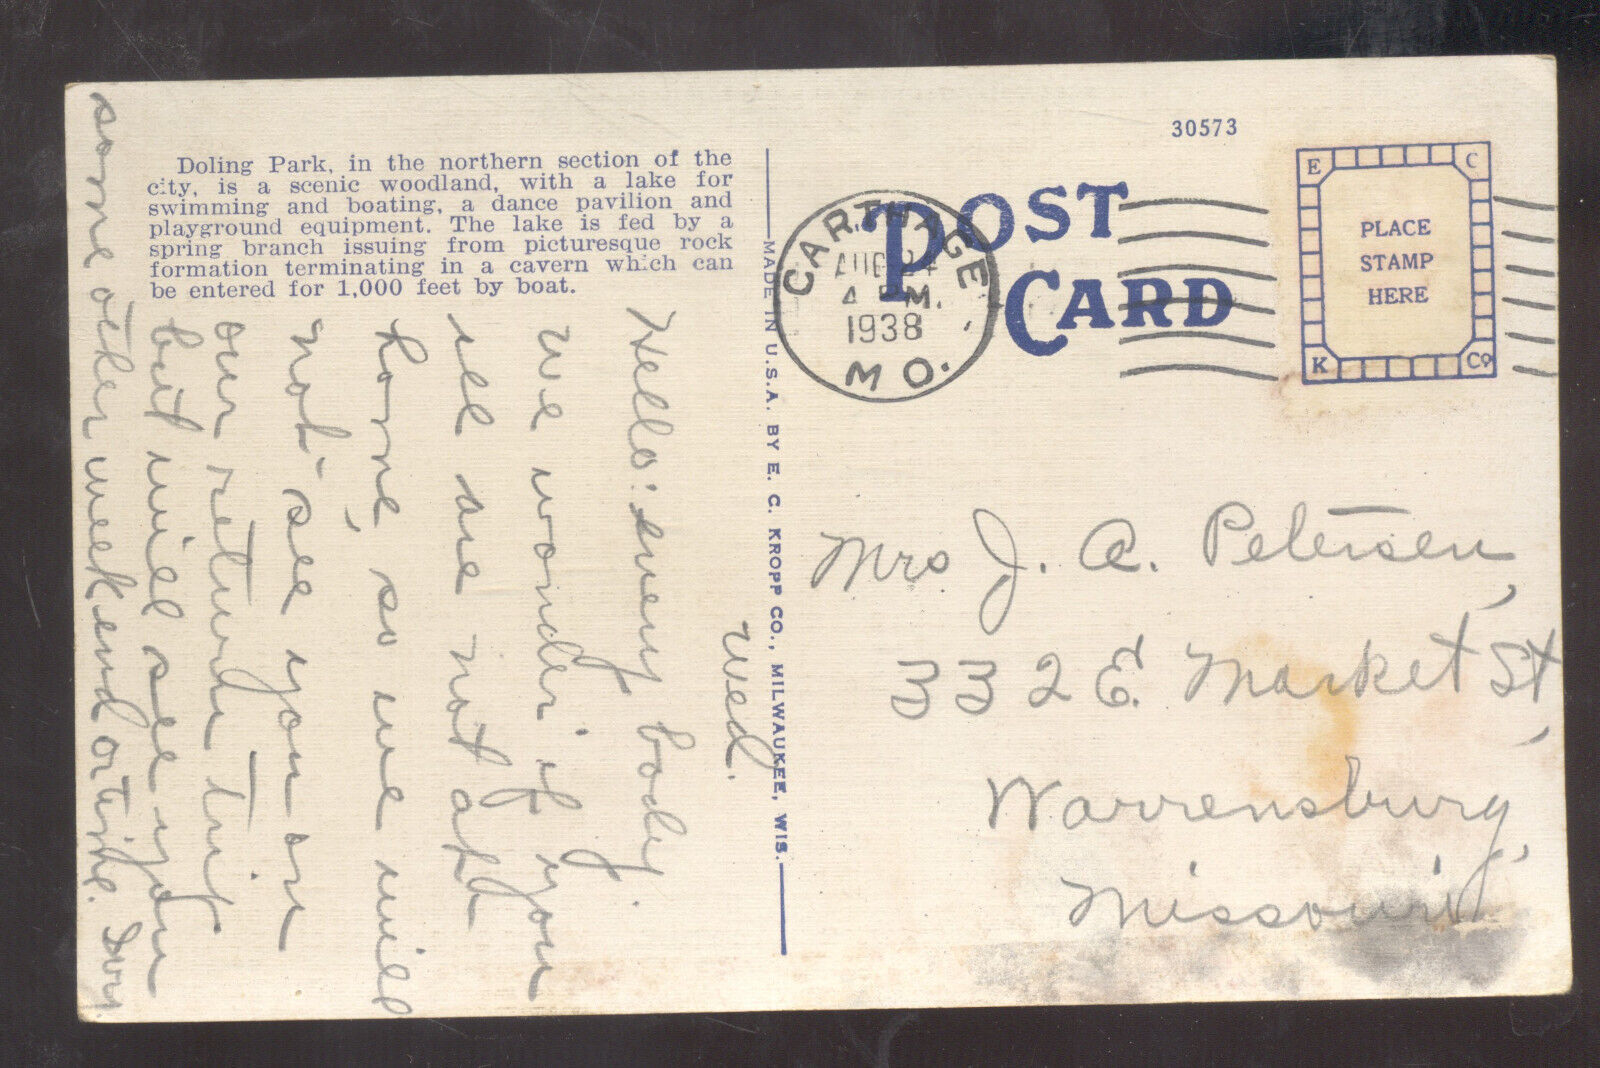 30573
Doling Park, in the northern section of the
city, is a scenic woodland, with a lake for
swimming and boating, a dance pavilion and
playground equipment. The lake is fed by a
spring branch issuing from picturesque rock
formation terminating in a cavern which can
be entered for 1,000 feet by boat.
POST
CARD
CARTHAGE
AUG 24
4 PM.
1938
MO.
E C
PLACE
STAMP
HERE
K Co
MADE IN U.S.A. BY E. C. KROPP CO., MILWAUKEE, WIS.
Wed.
Hello: every body.
we wonder if you
all are not at
home, so we will
not see you on
our return trip
but will see you
some other weekend or time.
Mrs J. A. Petersen,
332 E. Market St,
Warrensburg,
Missouri